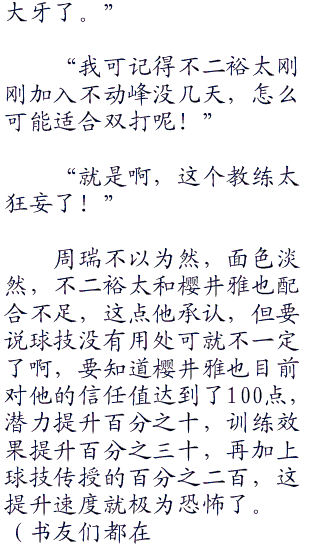 大牙了。”
“我可记得不二裕太刚
刚加入不动峰没几天，怎么
可能适合双打呢！”
“就是啊，这个教练太
狂妄了！”
周瑞不以为然，面色淡
然，不二裕太和樱井雅也配
合不足，这点他承认，但要
说球技没有用处可就不一定
了啊，要知道樱井雅也目前
对他的信任值达到了100点，
潜力提升百分之十，训练效
果提升百分之三十，再加上
球技传授的百分之二百，这
提升速度就极为恐怖了。
（书友们都在